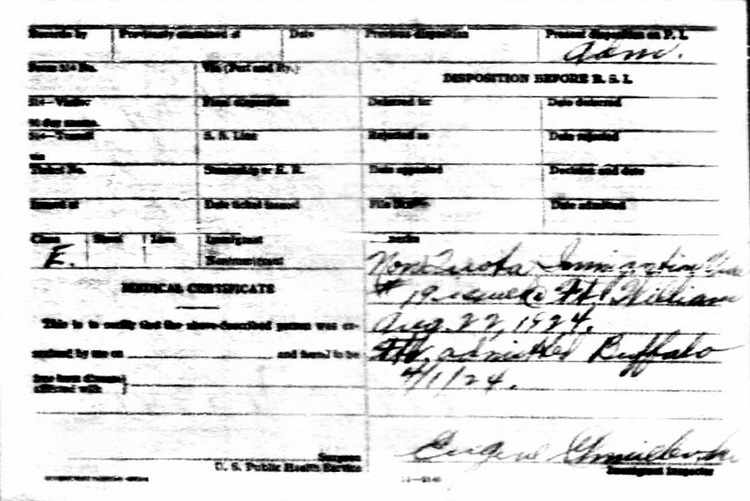 Records by Previously examined at Date Previous disposition Present disposition on P. I.
Adm.
Form 514 No. Via (Port and Ry.) DISPOSITION BEFORE B. S. I.
514—Visitor Final disposition Deferred to: Date deferred
514—Transit S. S. Line Rejected as Date rejected
via
Ticket No. Steamship or R. R. Date appealed Decision and date
Issued at Date ticket issued File Date admitted
Class Head Line Immigrant
E. Nonimmigrant
Non Quota Immigration Visa
MEDICAL CERTIFICATE
# 19 issued Ft William
This is to certify that the above-described person was ex-
Aug. 22, 1924.
amined by me on and found to be
Fth. admitted Buffalo
afflicted with
4/1/24.
Eugene
Surgeon
U. S. Public Health Service
Immigrant Inspector